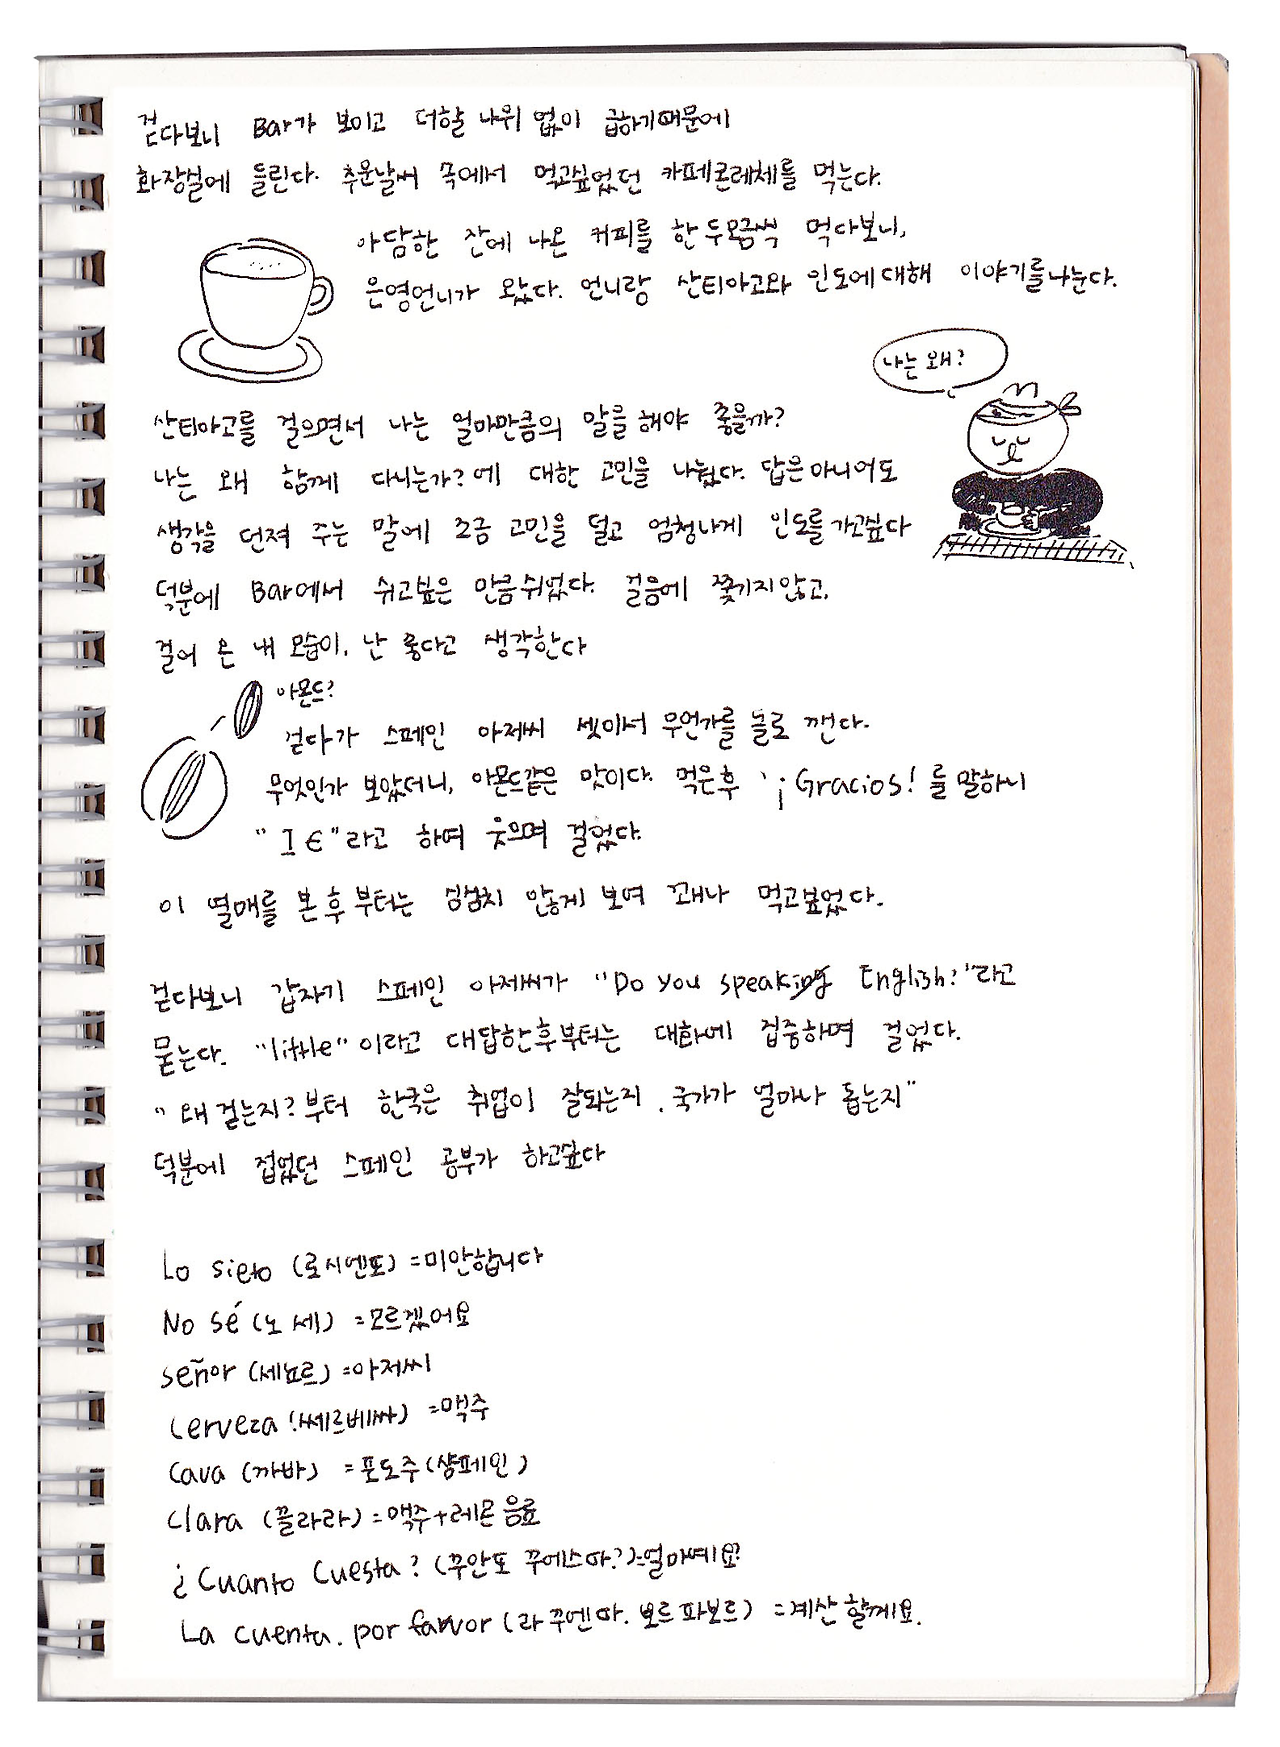 걷다보니 Bar가 보이고 더할 나위 없이 급하기때문에
화장실에 들린다. 추운날씨 속에서 먹고싶었던 카페콘레체를 먹는다.
아담한 잔에 나온 커피를 한두모금씩 먹다보니,
은영언니가 왔다. 언니랑 산티아고와 인도에대해 이야기를나눈다.
나는 왜?
산티아고를 걸으면서 나는 얼마만큼의 말을해야 좋을까?
나는 왜 함께 다니는가?에 대한 고민을 나눴다. 답은아니어도
생각을 던져 주는 말에 조금 고민을 덜고 엄청나게 인도를가고싶다
덕분에 Bar에서 쉬고싶은 만큼쉬었다. 걸음에 쫓기지않고,
걸어 온 내 모습이, 난 좋다고 생각한다
아몬드?
걷다가 스페인 아저씨 셋이서 무언가를 돌로 깬다.
무엇인가 보았더니, 아몬드같은 맛이다. 먹은후 '¡Gracios!를말하니
"1€"라고 하여 웃으며 걸었다.
이 열매를 본후부터는 심상치 않게 보여 꽤나 먹고싶었다.
걷다보니 갑자기 스페인 아저씨가 "Do you speaking English?"라고
묻는다. "little"이라고 대답한후부터는 대화에 집중하며 걸었다.
"왜걷는지?부터 한국은 취업이 잘되는지, 국가가 얼마나 돕는지"
덕분에 접었던 스페인 공부가 하고싶다
Lo sieto (로시엔또) =미안합니다
No sé (노 세) =모르겠어요
señor (세뇨르) =아저씨
Cerveza (쎄르베싸) =맥주
Cava (까바) =포도주(샴페인)
Clara (끌라라) =맥주+레몬음료
¿Cuanto Cuesta? (꾸안또 꾸에스따?)=얼마예요?
La cuenta. por farvor (라 꾸엔따. 뽀르 파보르) =계산할께요.